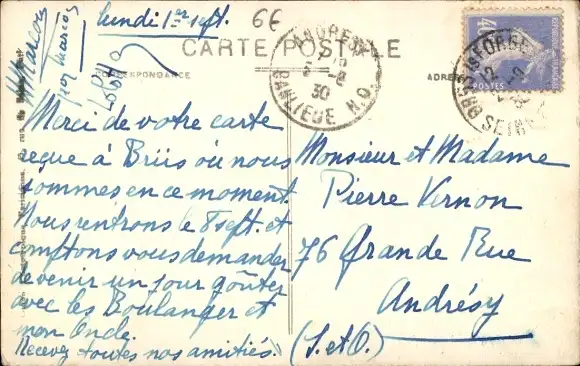 lundi 1er sept.
6E
CARTE POSTALE
CORRESPONDANCE
ADRES
Merci de votre carte
reçue à Briis où nous
sommes en ce moment.
Nous rentrons le 8 sept. et
comptons vous demander
de venir un jour goûter
avec les Boulanger et
mon Oncle.
Recevez toutes nos amitiés.
Monsieur et Madame
Pierre Vernon
76 Grande Rue
Andrésy
(S. et O.)
ANDRESY
30
BANLIEUE N.O.
POSTES